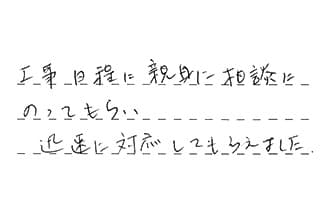 工事日程に親身に相談に
のってもらい
迅速に対応してもらえました.